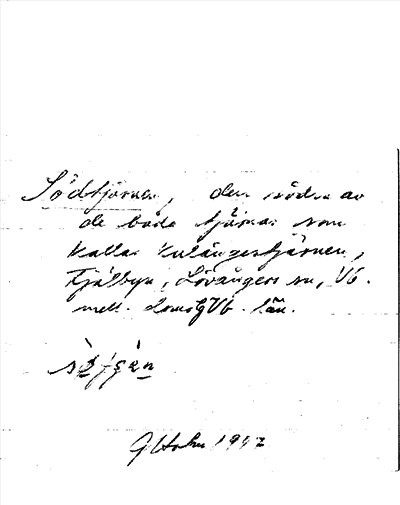 Södtjärnen, den södra av
de båda tjärnar som
kallas Kulängestjärnen,
Fjälbyn, Lövångers sn, Vb.
mell. Vb. län.
1947